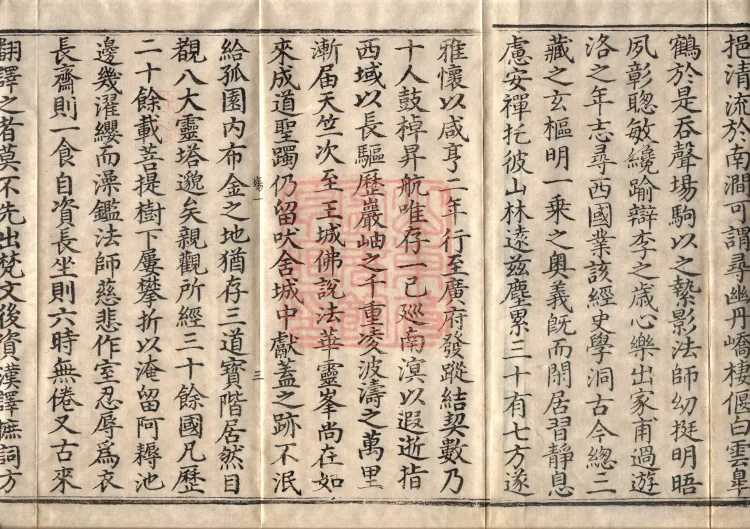 挹清流於南澗可謂尋幽丹嶠棲偃白雲臯
鶴於是吞聲場駒以之縶影法師幼挺明晤
夙彰聰敏纔踰辯李之歲心樂出家甫過遊
洛之年志尋西國業該經史學洞古今總三
藏之玄樞明一乘之奥義旣而閑居習靜息
慮安禪託彼山林遠兹塵累三十有七方遂
雅懷以咸亨二年行至廣府發蹤結契數乃
十人鼓棹昇航唯存一己巡南溟以遐逝指
西域以長驅歷巖岫之千重凌波濤之萬里
漸届天竺次至王城佛説法華靈峯尚在如
來成道聖躅仍留吠舍城中獻蓋之跡不泯
給孤園内布金之地猶存三道寶階居然目
覩八大靈塔邈矣親觀所經三十餘國凡歷
二十餘載菩提樹下屢攀折以淹留阿耨池
邊幾濯纓而澡鑑法師慈悲作室忍辱爲衣
長齋則一食自資長坐則六時無倦又古來
翻譯之者莫不先出梵文後資漢譯摭詞方